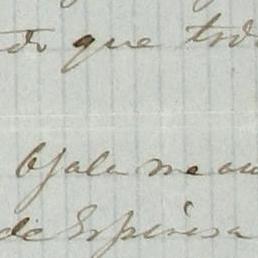 que tod
Ojala me au
de Espinosa